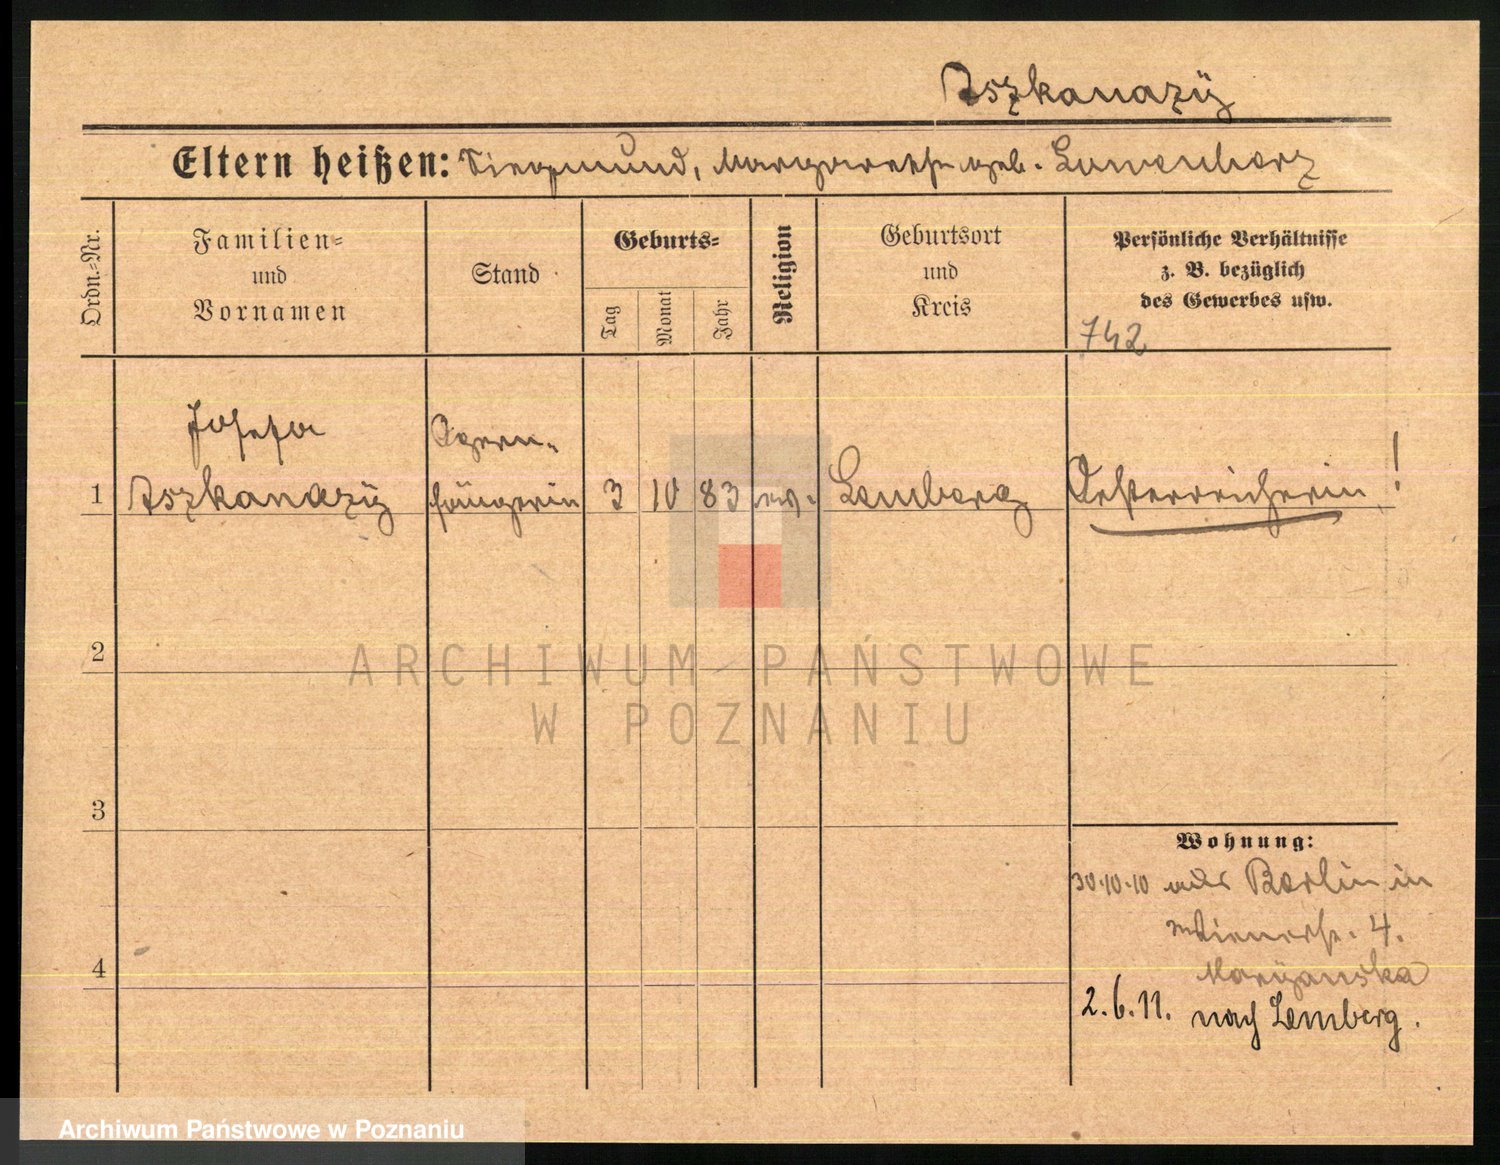 Aszkanazÿ
Eltern heißen: Siegmund, Margarethe geb. Lauenherz
Ordn.=Nr.
Familien=
und
Vornamen
Stand
Geburts=
Tag
Monat
Jahr
Religion
Geburtsort
und
Kreis
Persönliche Verhältnisse
z. B. bezüglich
des Gewerbes usw.
742
1
Josefa
Aszkanazÿ
Opern=
sängerin
3
10
83
Lemberg
Oesterreicherin!
2
ARCHIWUM PAŃSTWOWE
W POZNANIU
3
Wohnung:
30.10.10 aus Berlin in
Wienerstr. 4.
4
Maryanska
2.6.11. nach Lemberg.
Archiwum Państwowe w Poznaniu